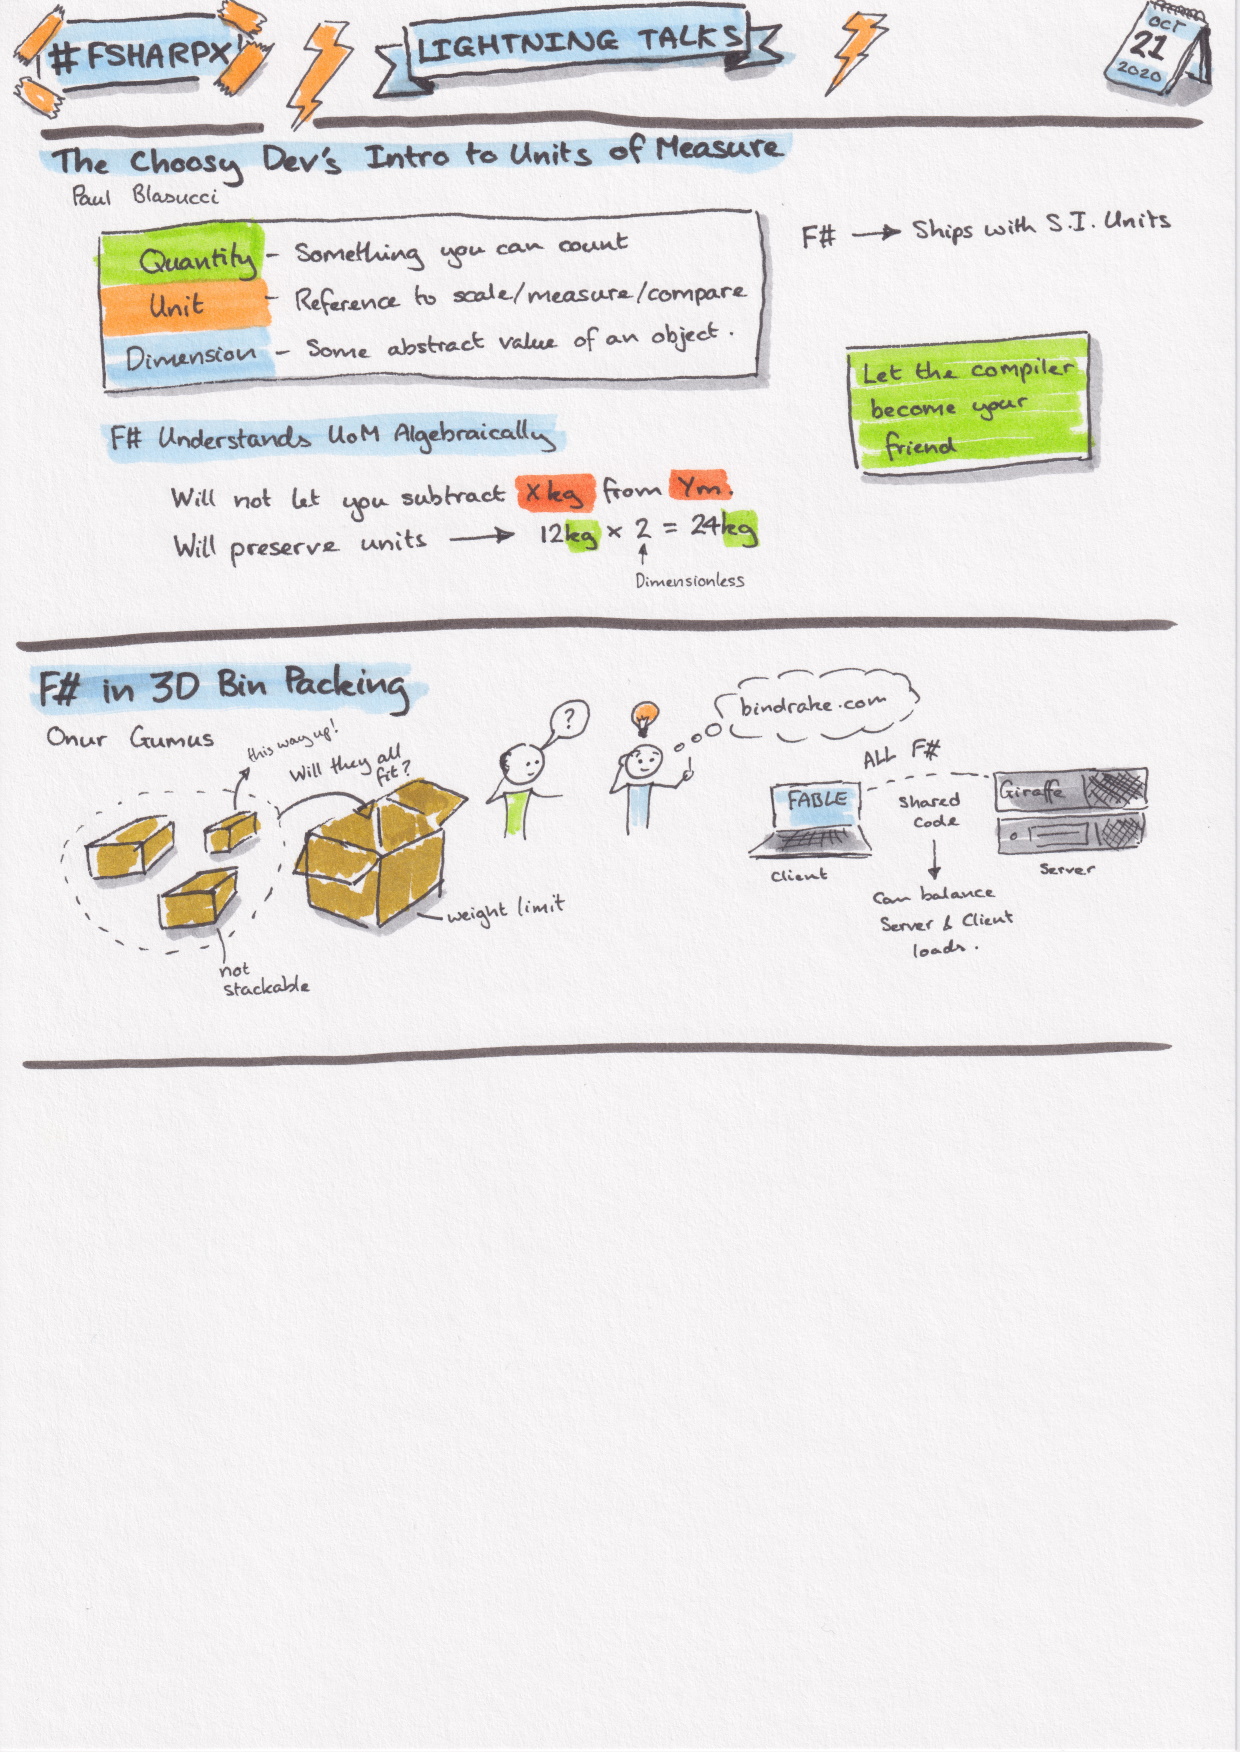 #FSHARPX
LIGHTNING TALKS
OCT
21
2020
The Choosy Dev's Intro to Units of Measure
Paul Blasucci
Quantity - Something you can count
Unit - Reference to scale/measure/compare
Dimension - Some abstract value of an object.
F# → Ships with S.I. Units
Let the compiler
become your
friend
F# Understands UoM Algebraically
Will not let you subtract Xkg from Ym.
Will preserve units → 12kg × 2 = 24kg
↑
Dimensionless
F# in 3D Bin Packing
Onur Gumus
this way up!
Will they all
fit?
not
stackable
weight limit
?
bindrake.com
ALL F#
FABLE
Client
Shared
Code
Can balance
Server & Client
loads.
Giraffe
Server